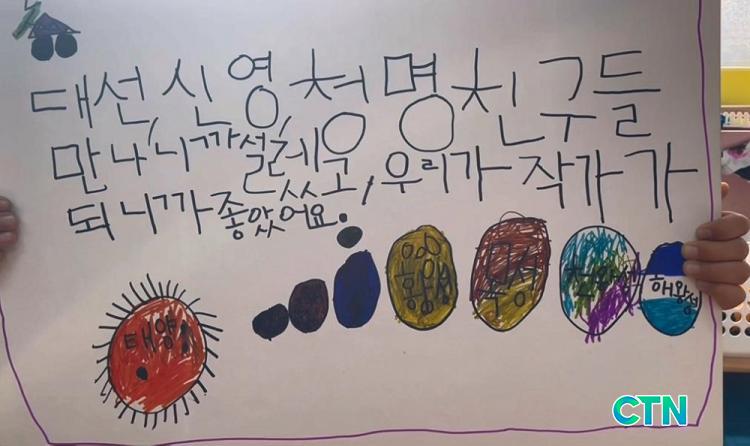 대선,신영,청명친구들
만나니까설렜고,우리가 작가가
되니까좋았어요.
태양
목성
천왕성
해왕성
CTN